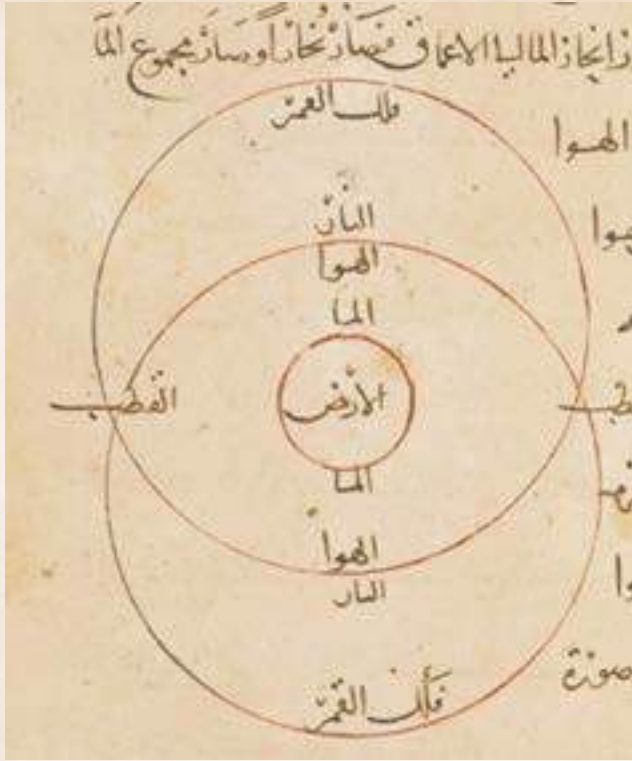 انحاز الما الى الاعماق فصار بخارا وصار مجموع الما
فلك القمر
الهوا
النار
الهوا
الما
القطب
الارض
الما
الهوا
النار
فلك القمر
صورة